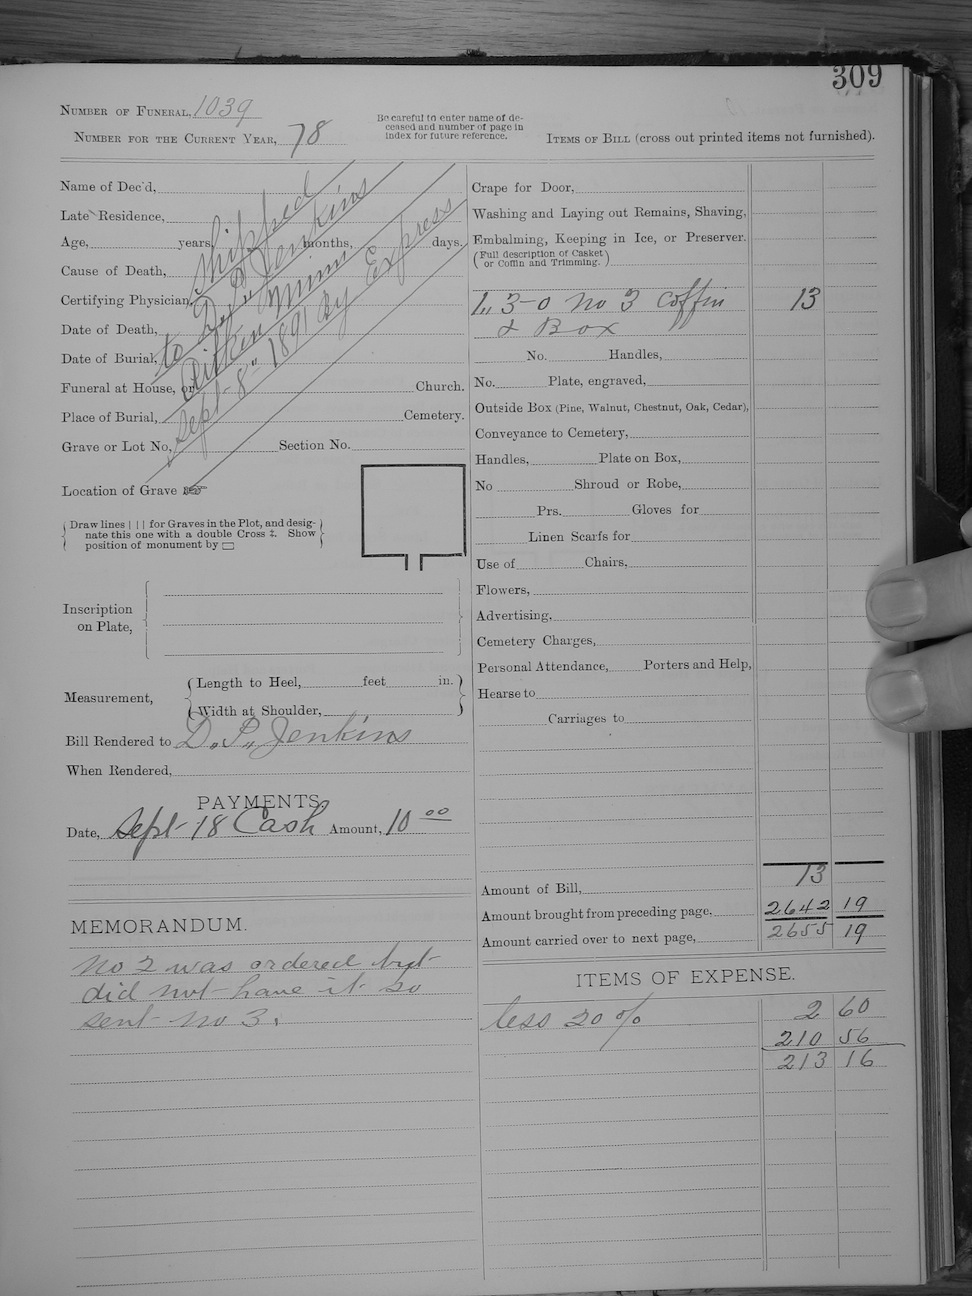 309
NUMBER OF FUNERAL, 1039
NUMBER FOR THE CURRENT YEAR, 78
Be careful to enter name of de-
ceased and number of page in
index for future reference.
ITEMS OF BILL (cross out printed items not furnished).
Name of Dec'd,
Late Residence,
Age, years, months, days.
Cause of Death,
Certifying Physician,
Date of Death,
Date of Burial,
Funeral at House, or Church.
Place of Burial, Cemetery.
Grave or Lot No. Section No.
Shipped
to D. P. Jenkins
Aitkin Minn
Sept. 8" 1891 By Express
Location of Grave ☞
Draw lines | | | for Graves in the Plot, and desig-
nate this one with a double Cross ‡. Show
position of monument by ▭
Inscription
on Plate,
Measurement,
Length to Heel, feet in.
Width at Shoulder,
Bill Rendered to D. P. Jenkins
When Rendered,
PAYMENTS.
Date, Sept 18 Cash Amount, 10 00
MEMORANDUM.
No 2 was ordered but
did not have it so
sent no 3.
Crape for Door,
Washing and Laying out Remains, Shaving,
Embalming, Keeping in Ice, or Preserver.
(Full description of Casket
or Coffin and Trimming.)
1, 3-0 no 3 coffin 13
& Box
No. Handles,
No. Plate, engraved,
Outside Box (Pine, Walnut, Chestnut, Oak, Cedar),
Conveyance to Cemetery,
Handles, Plate on Box,
No Shroud or Robe,
Prs. Gloves for
Linen Scarfs for
Use of Chairs,
Flowers,
Advertising,
Cemetery Charges,
Personal Attendance, Porters and Help,
Hearse to
Carriages to
Amount of Bill, 13
Amount brought from preceding page, 2642 19
Amount carried over to next page, 2655 19
ITEMS OF EXPENSE.
less 20 % 2 60
210 56
213 16